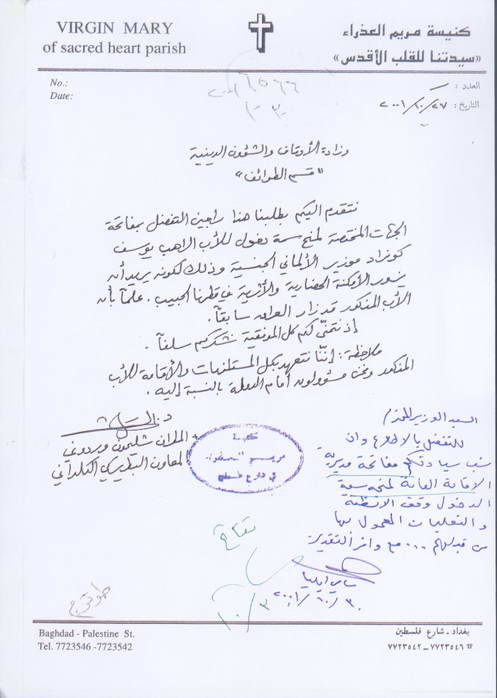 VIRGIN MARY
of sacred heart parish
كنيسة مريم العذراء
«سيدتنا للقلب الأقدس»
No.:
Date:
العدد :
التاريخ : ٢٧/١٠/٢٠٠١
وزارة الأوقاف والشؤون الدينية
«قسم الطوائف»
نتقدم اليكم بطلبنا هذا راجين التفضل بمفاتحة
الجهات المختصة لمنح سمة دخول للأب الراهب يوسف
كونراد موزير الألماني الجنسية وذلك لكونه يريد أن
يزور الأمكنة الحضارية والأثرية في قطرنا الحبيب. علماً بأن
الأب المذكور قد زار العراق سابقاً.
إذ نتمنى لكم كل الموفقية نشكركم سلفاً.
ملاحظة: إننا نتعهد بكل المستلزمات والأقامة للأب
المذكور ونحن مسؤولون أمام الدولة بالنسبة إليه.
المطران شليمون وردوني
المعاون البطريركي الكلداني
كنيسة
مريم العذراء
في شارع فلسطين
السيد الوزير المحترم
للتفضل بالاطلاع وان
نسب سيادتكم مفاتحة مديرية
الاقامة العامة لمنحه سمة
الدخول وفق الانظمة
والتعليمات المعمول بها
من قبلهم ... مع وافر التقدير
٣٠/١٠/٢٠٠١
تفاتح
٣٠/١٠
Baghdad - Palestine St.
Tel. 7723546 -7723542
بغداد ـ شارع فلسطين
☎ ٧٧٢٣٥٤٦ ـ ٧٧٢٣٥٤٢